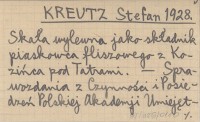 KREUTZ Stefan 1928.
Skała wylewna jako składnik
piaskowca fliszowego z Ko-
zińca pod Tatrami. — Spra-
wozdania z Czynności i Posie-
dzeń Polskiej Akademji Umiejęt-